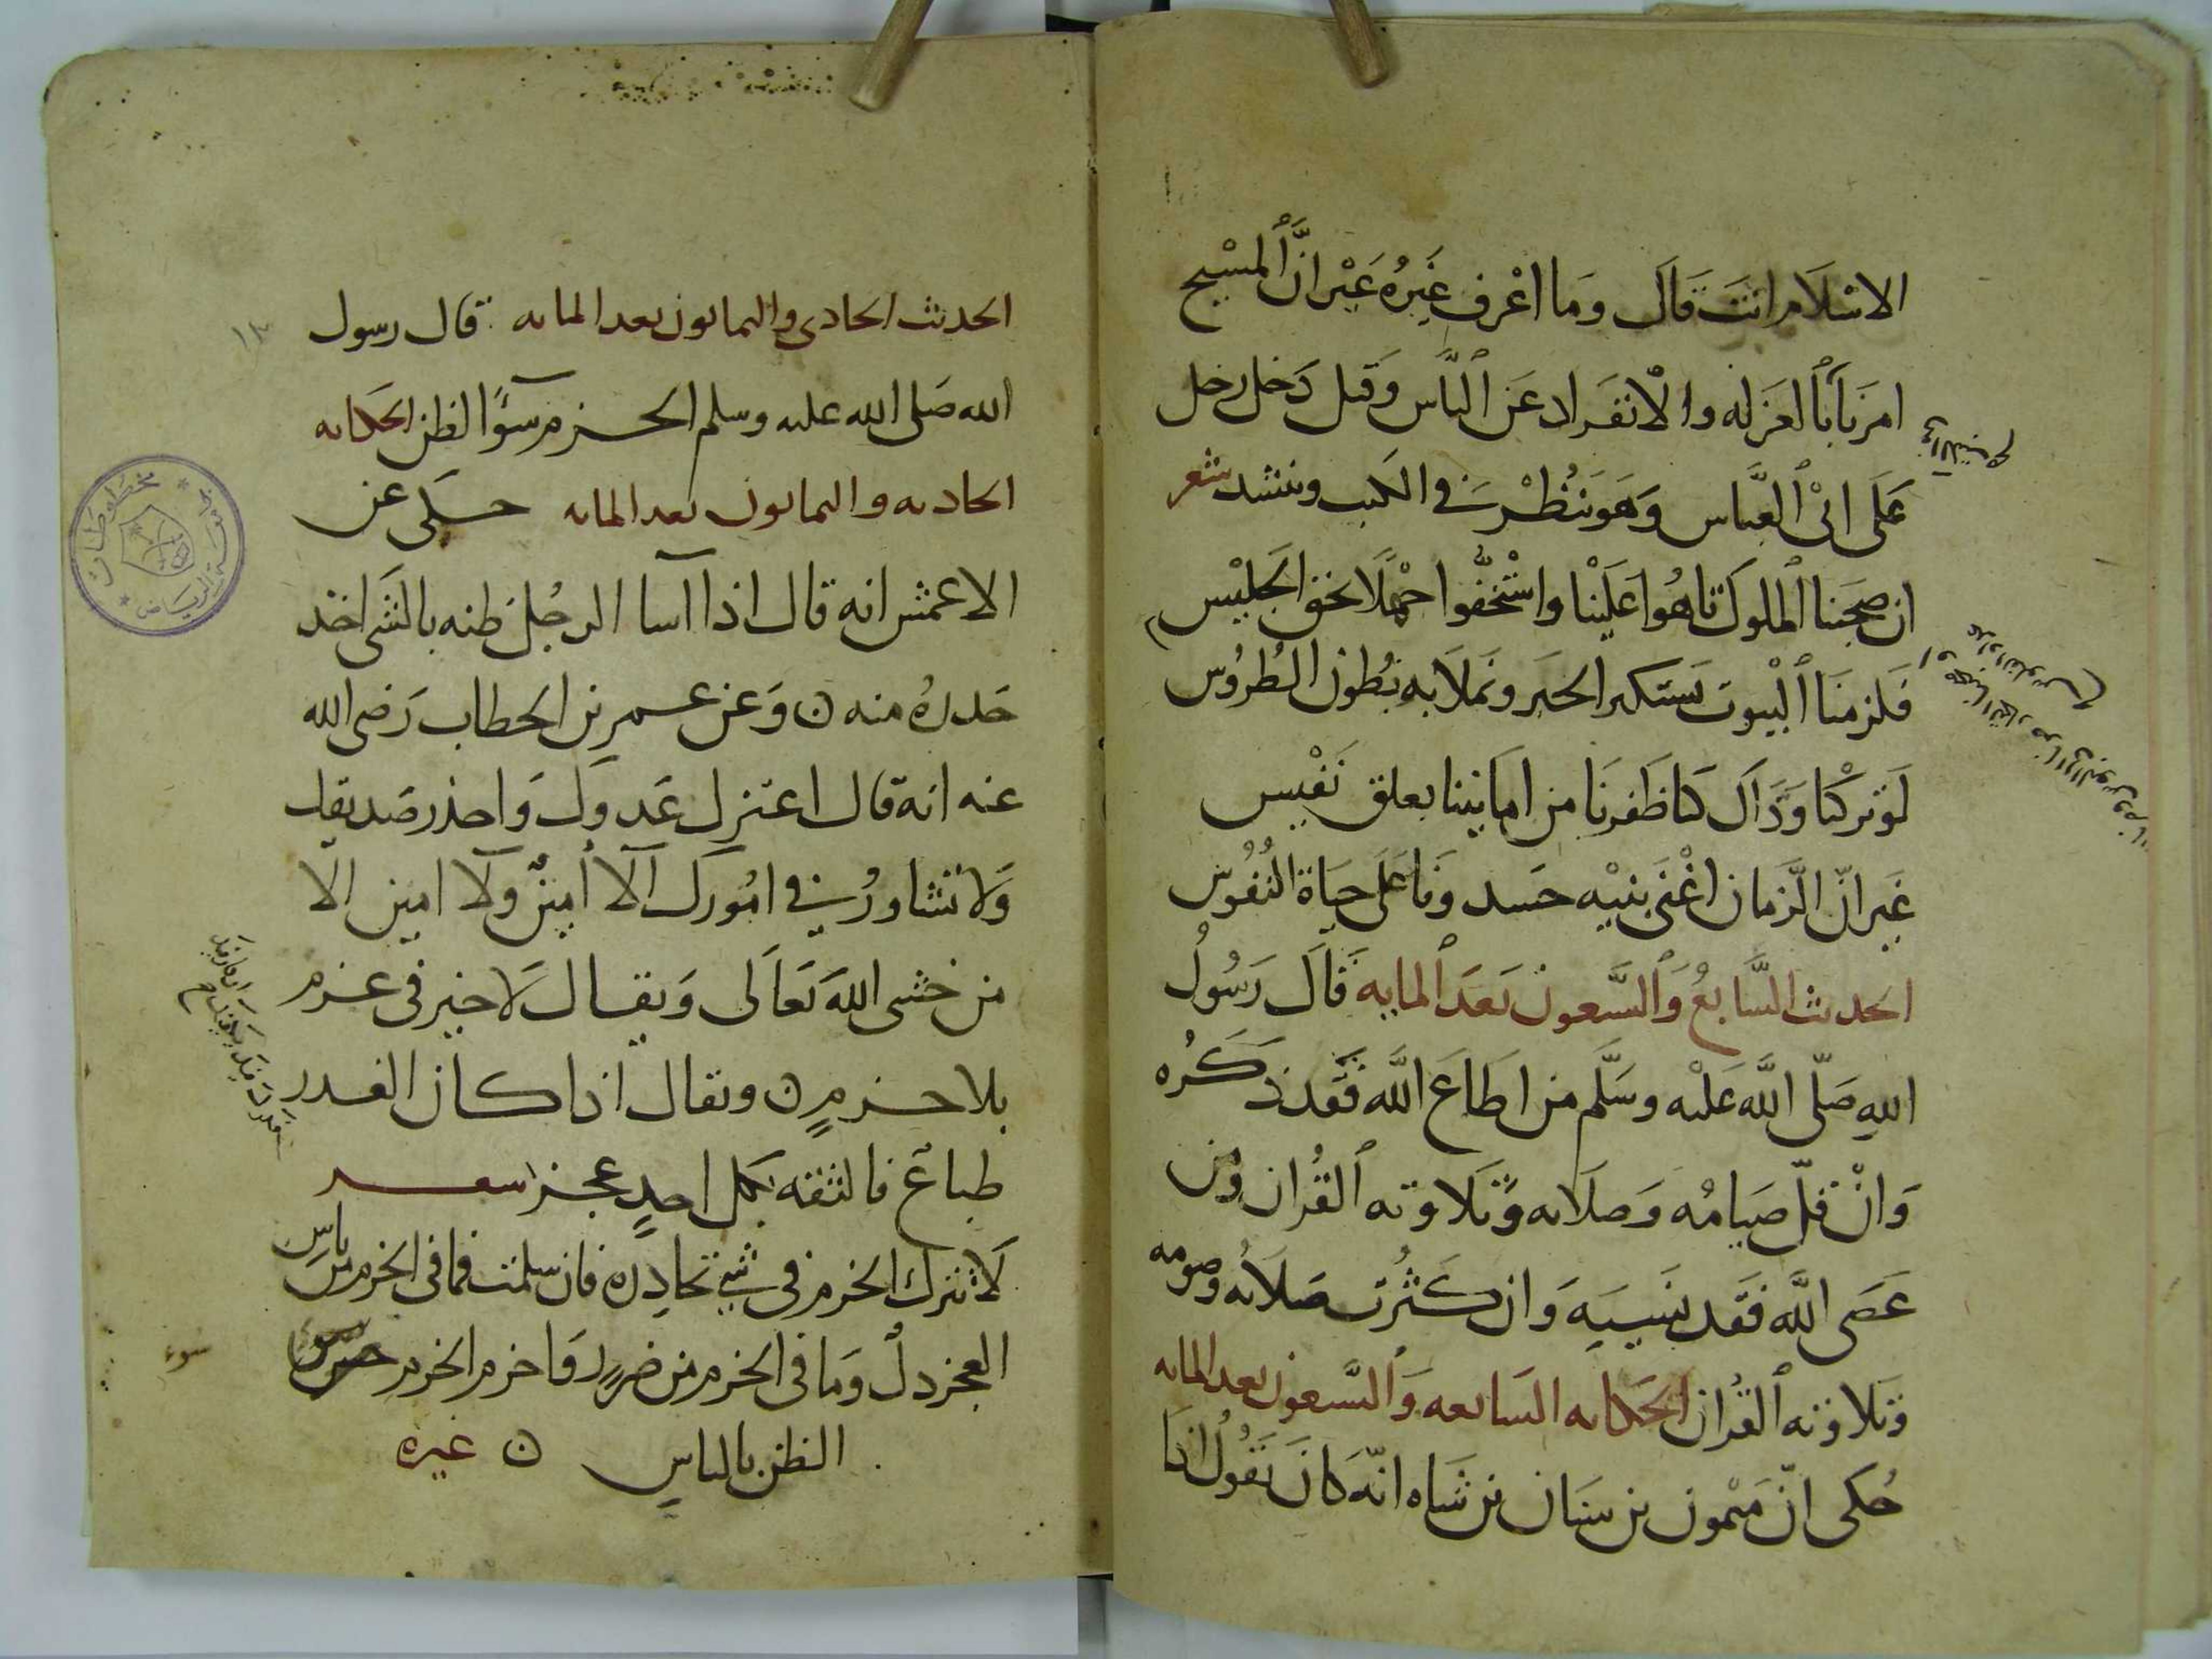 الاسلام انت قال وما اعرف غيره غير ان المسيح
امرنا بالعزله والانفراد عن الناس وقيل دخل رجل
على ابي العباس وهو ينظر في الكتب وينشد شعر
ان صحبنا الملوك تاهوا علينا واستخفوا جهلا بحق الجليس
فلزمنا البيوت نستكبر الحبر ونملا به بطون الطروس
لو تركنا وذاك كنا ظفرنا من امانينا بعلق نفيس
غير ان الزمان اغنى بنيه حسد ونا على حياة النفوس
الحديث السابع والسبعون بعد المايه قال رسول
الله صلى الله عليه وسلم من اطاع الله فقد ذكره
وان قل صيامه وصلاته وتلاوته القران ومن
عصى الله فقد نسيه وان كثرت صلاته وصومه
وتلاوته القران الحكايه السابعه والسبعون بعد المايه
حكى ان ميمون بن سنان بن شاه انه كان يقول اذا
الحديث الحادى والثمانون بعد المايه قال رسول
الله صلى الله عليه وسلم الحزم سوا الظن الحكايه
الحاديه والثمانون بعد المايه حكى عن
الاعمش انه قال اذا اسا الرجل ظنه بالشى اخذ
حذره منه ن وعن عمر بن الخطاب رضى الله
عنه انه قال اعتزل عدوك واحذر صديقك
ولا تشاور في امورك الا امين ولا امين الا
من خشى الله تعالى ويقال لا خير فى عزم
بلا حزم ن ويقال اذا كان الغدر
طباع فالثقه بكل احد عجز شعر
لا تترك الحزم فى شي تحاذره فان سلمت فما فى الحزم من باس
العجز ذل وما فى الحزم من ضرر واحزم الحزم سوء
الظن بالناس ن غيره
سوء